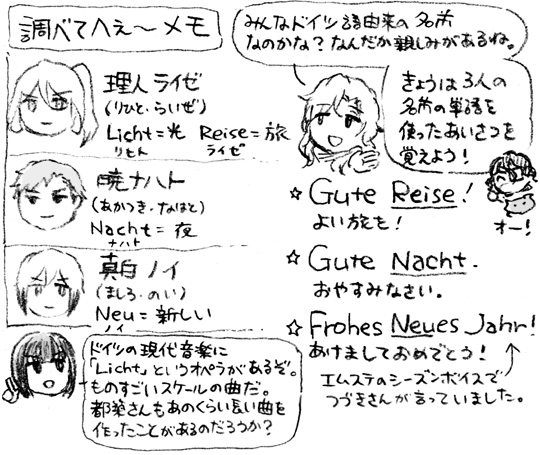 調べてへぇ～メモ
理人ライゼ
(りひと・らいぜ)
Licht=光 Reise=旅
リヒト ライゼ
暁ナハト
(あかつき・なはと)
Nacht=夜
ナハト
真白ノイ
(ましろ・のい)
Neu=新しい
ノイ
ドイツの現代音楽に
「Licht」というオペラがあるぞ。
ものすごいスケールの曲だ。
都築さんもあのくらい長い曲を
作ったことがあるのだろうか?
みんなドイツ語由来の名前
なのかな?なんだか親しみがあるね。
きょうは3人の
名前の単語を
使ったあいさつを
覚えよう!
オー!
☆Gute Reise!
よい旅を!
☆Gute Nacht.
おやすみなさい。
☆Frohes Neues Jahr!
あけましておめでとう!
エムステのシーズンボイスで
つづきさんが言っていました。